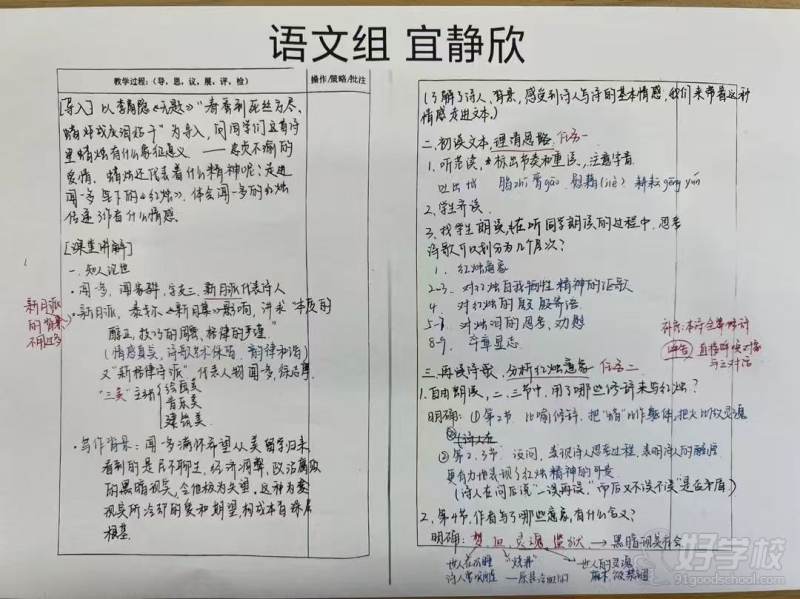 语文组 宜静欣
教学过程:(导、思、议、展、评、检)
操作/策略/批注
[导入] 以李商隐《无题》"春蚕到死丝方尽,
蜡炬成灰泪始干"为导入,问同学们这首诗
里蜡烛有什么象征意义 —— 忠贞不渝的
爱情。蜡烛还代表着什么精神呢?走进
闻一多笔下的《红烛》,体会闻一多的红烛
传递了作者什么情感。
[课堂讲解]
一、知人论世
·闻一多,闻家骅,字友三,新月派代表诗人
·新月派,泰戈尔《新月集》影响,讲求"本质的
醇正,技巧的周密,格律的谨严"
(情感真实,诗歌艺术保留,韵律和谐)
又"新格律诗派",代表人物闻一多,徐志摩
"三美"主张
绘画美
音乐美
建筑美
新月派
的背景
不用过多
·写作背景:闻一多满怀希望从美留学归来
看到的是民不聊生,经济凋弊,政治腐败
的黑暗现实,令他极为失望,这种为
现实所冷却的爱和期望,构成本首诗
根基
(了解了诗人、背景,感受到诗人与诗的基本情感,我们来带着这种
情感走进文本。)
二、初读文本,理清思路 任务一
1. 听范读,标出节奏和重读,注意字音
吐出 脂zhī 膏gāo 慰藉(jiè) 耕耘gēng yún
2. 学生齐读
3. 找学生朗读,在听同学朗读的过程中,思考
诗歌可以划分为几个层次?
1. 红烛意象
2-3. 对红烛自我牺牲精神的讴歌
4. 对红烛的殷殷寄语
5-7. 对烛泪的思考、劝慰
8-9. 卒章显志
补充:本诗全篇修辞
直接呼唤对象
与之对话
三、再读诗歌,分析红烛意象 任务二
1. 自由朗读,一、二、三节中,用了哪些修辞来写红烛?
明确:①第2节 比喻修辞,把"蜡"比作躯体,把火比作灵魂
②第2、3节 设问,表现诗人思考过程,表明诗人的
更有力地表现了红烛精神的可贵
(诗人在问后说"一误再误",而后又"不误不误"是否矛盾)
2. 第4节,作者写了哪些意象,有什么含义?
明确: 梦 血 灵魂 监狱 → 黑暗现实社会
世人在沉睡
"烧沸"
世人的灵魂
好学校
91goodschool.com